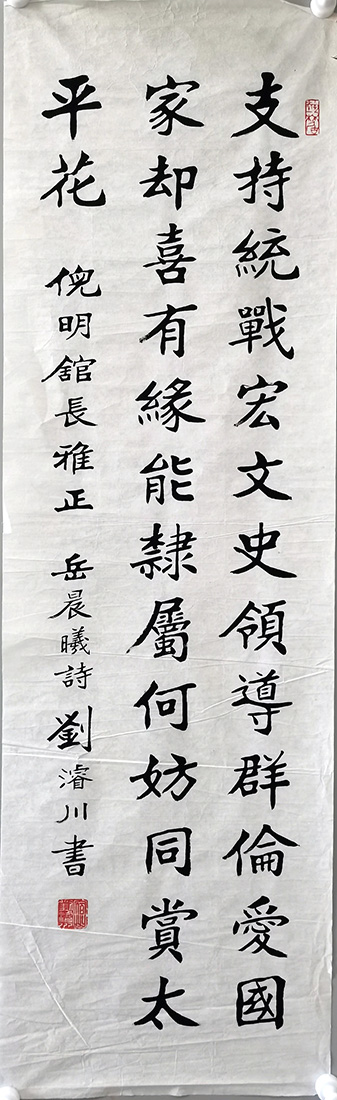 支持統戰宏文史領導群倫愛國
家却喜有緣能隸屬何妨同賞太
平花 倪明舘長雅正 岳晨曦詩 劉濬川書